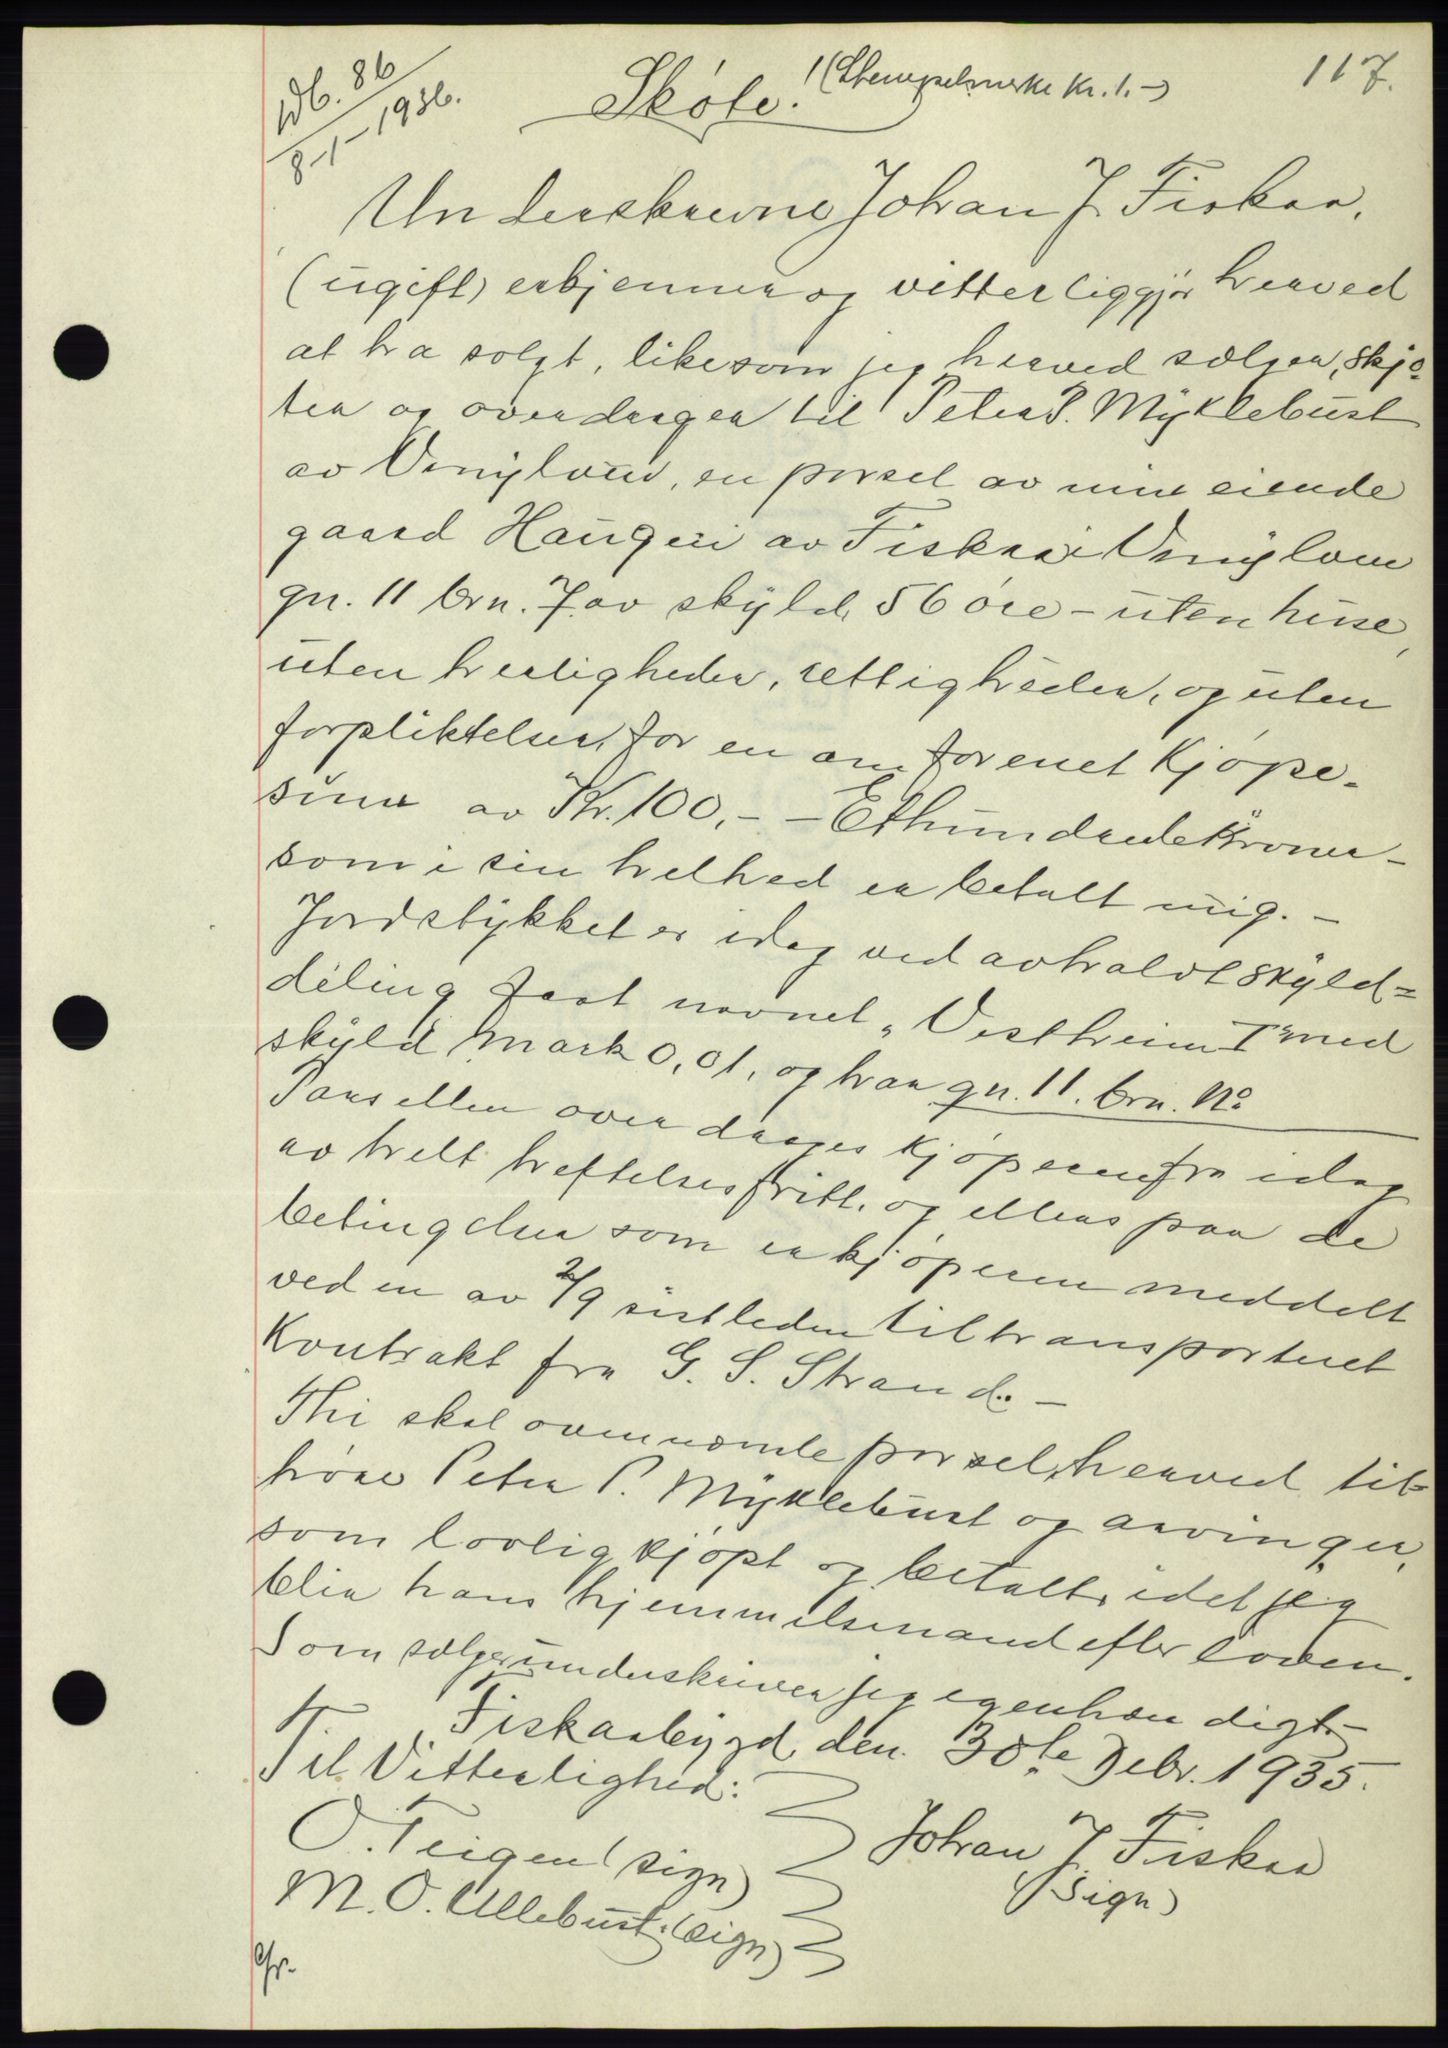 117.
Db. 86
8-1-1936.
Skøte. (Stempelmerke kr. 1.-)
Underskrevne Johan J. Fiskaa,
(ugift) erkjenner og vitterliggjør herved
at ha solgt, likesom jeg herved sælger, skjø-
ter og overdrager til Peter P. Myklebust
av Vanylven, en parsel av min eiende
gaard Haugen av Fiskaa i Vanylven
gn. 11 brn. 7 av skyld 56 øre - uten huse,
uten herligheder, rettigheder, og uten
forpliktelser, for en omforenet kjøpe-
sum av Kr. 100,- - Ethundrede kroner -
som i sin helhed er betalt mig. -
Jordstykket er idag ved avholdt skyld-
deling gaat navnet "Vestheim I" med
skyld mark 0,01, og har gn. 11. brn. No
Parsellen overdrages kjøperen fra idag
av helt heftelsesfritt, og ellers paa de
betingelser som er kjøperen meddelt
ved en av 2/9 sistleden tiltransporteret
Kontrakt fra G. S. Strand. -
Thi skal ovennævnte parsel, herved til-
høre Peter P. Myklebust og arvinger,
som lovlig kjøpt og betalt, idet jeg
blir hans hjemmelsmand efter loven.
Som sælger underskriver jeg egenhændigt. -
Fiskaabygd, den 30te Debr. 1935.
Til Vitterlighed:
O. Teigen (sign)
M. O. Ullebust. (sign)
Johan J. Fiskaa
(sign)